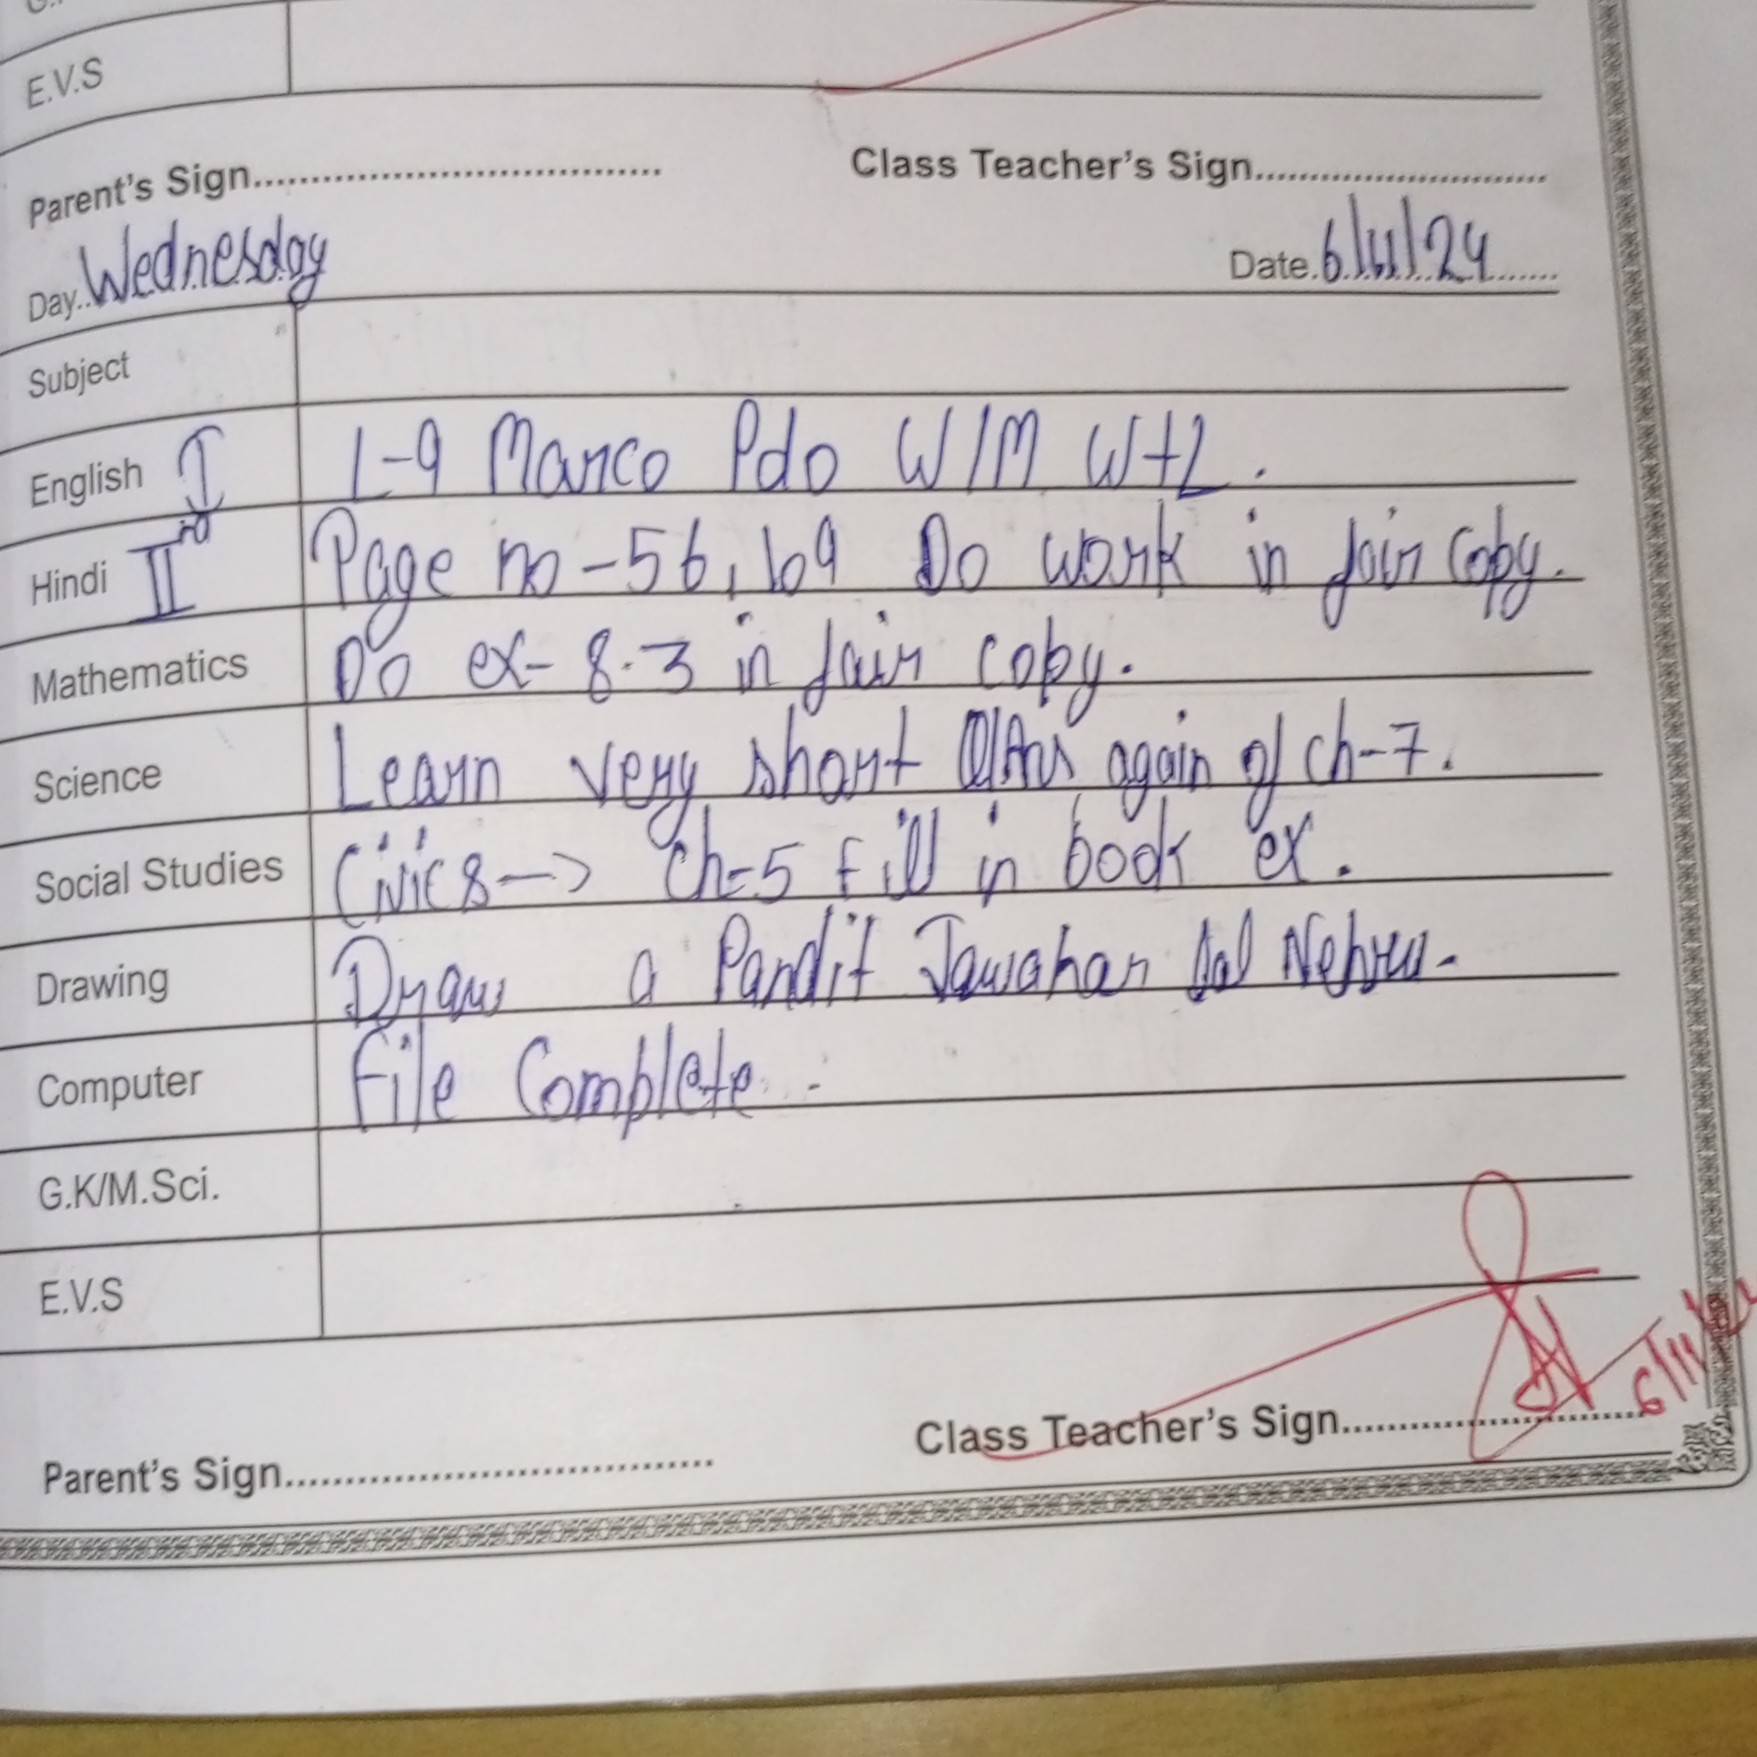 E.V.S
Parent's Sign.................................... Class Teacher's Sign............................
Day..Wednesday Date.6/11/24.......
Subject
English I L-9 Marco Pdo W/M W+L.
Hindi IInd Page no-56, 69 Do work in fair copy.
Mathematics Do ex-8.3 in fair copy.
Science Learn very short Q/Ans again of ch-7.
Social Studies Civics-> Ch-5 fill in book ex.
Drawing Draw a Pandit Jawahar Lal Nehru.
Computer File Complete.
G.K/M.Sci.
E.V.S
Parent's Sign.................................... Class Teacher's Sign............................ 6/11/24